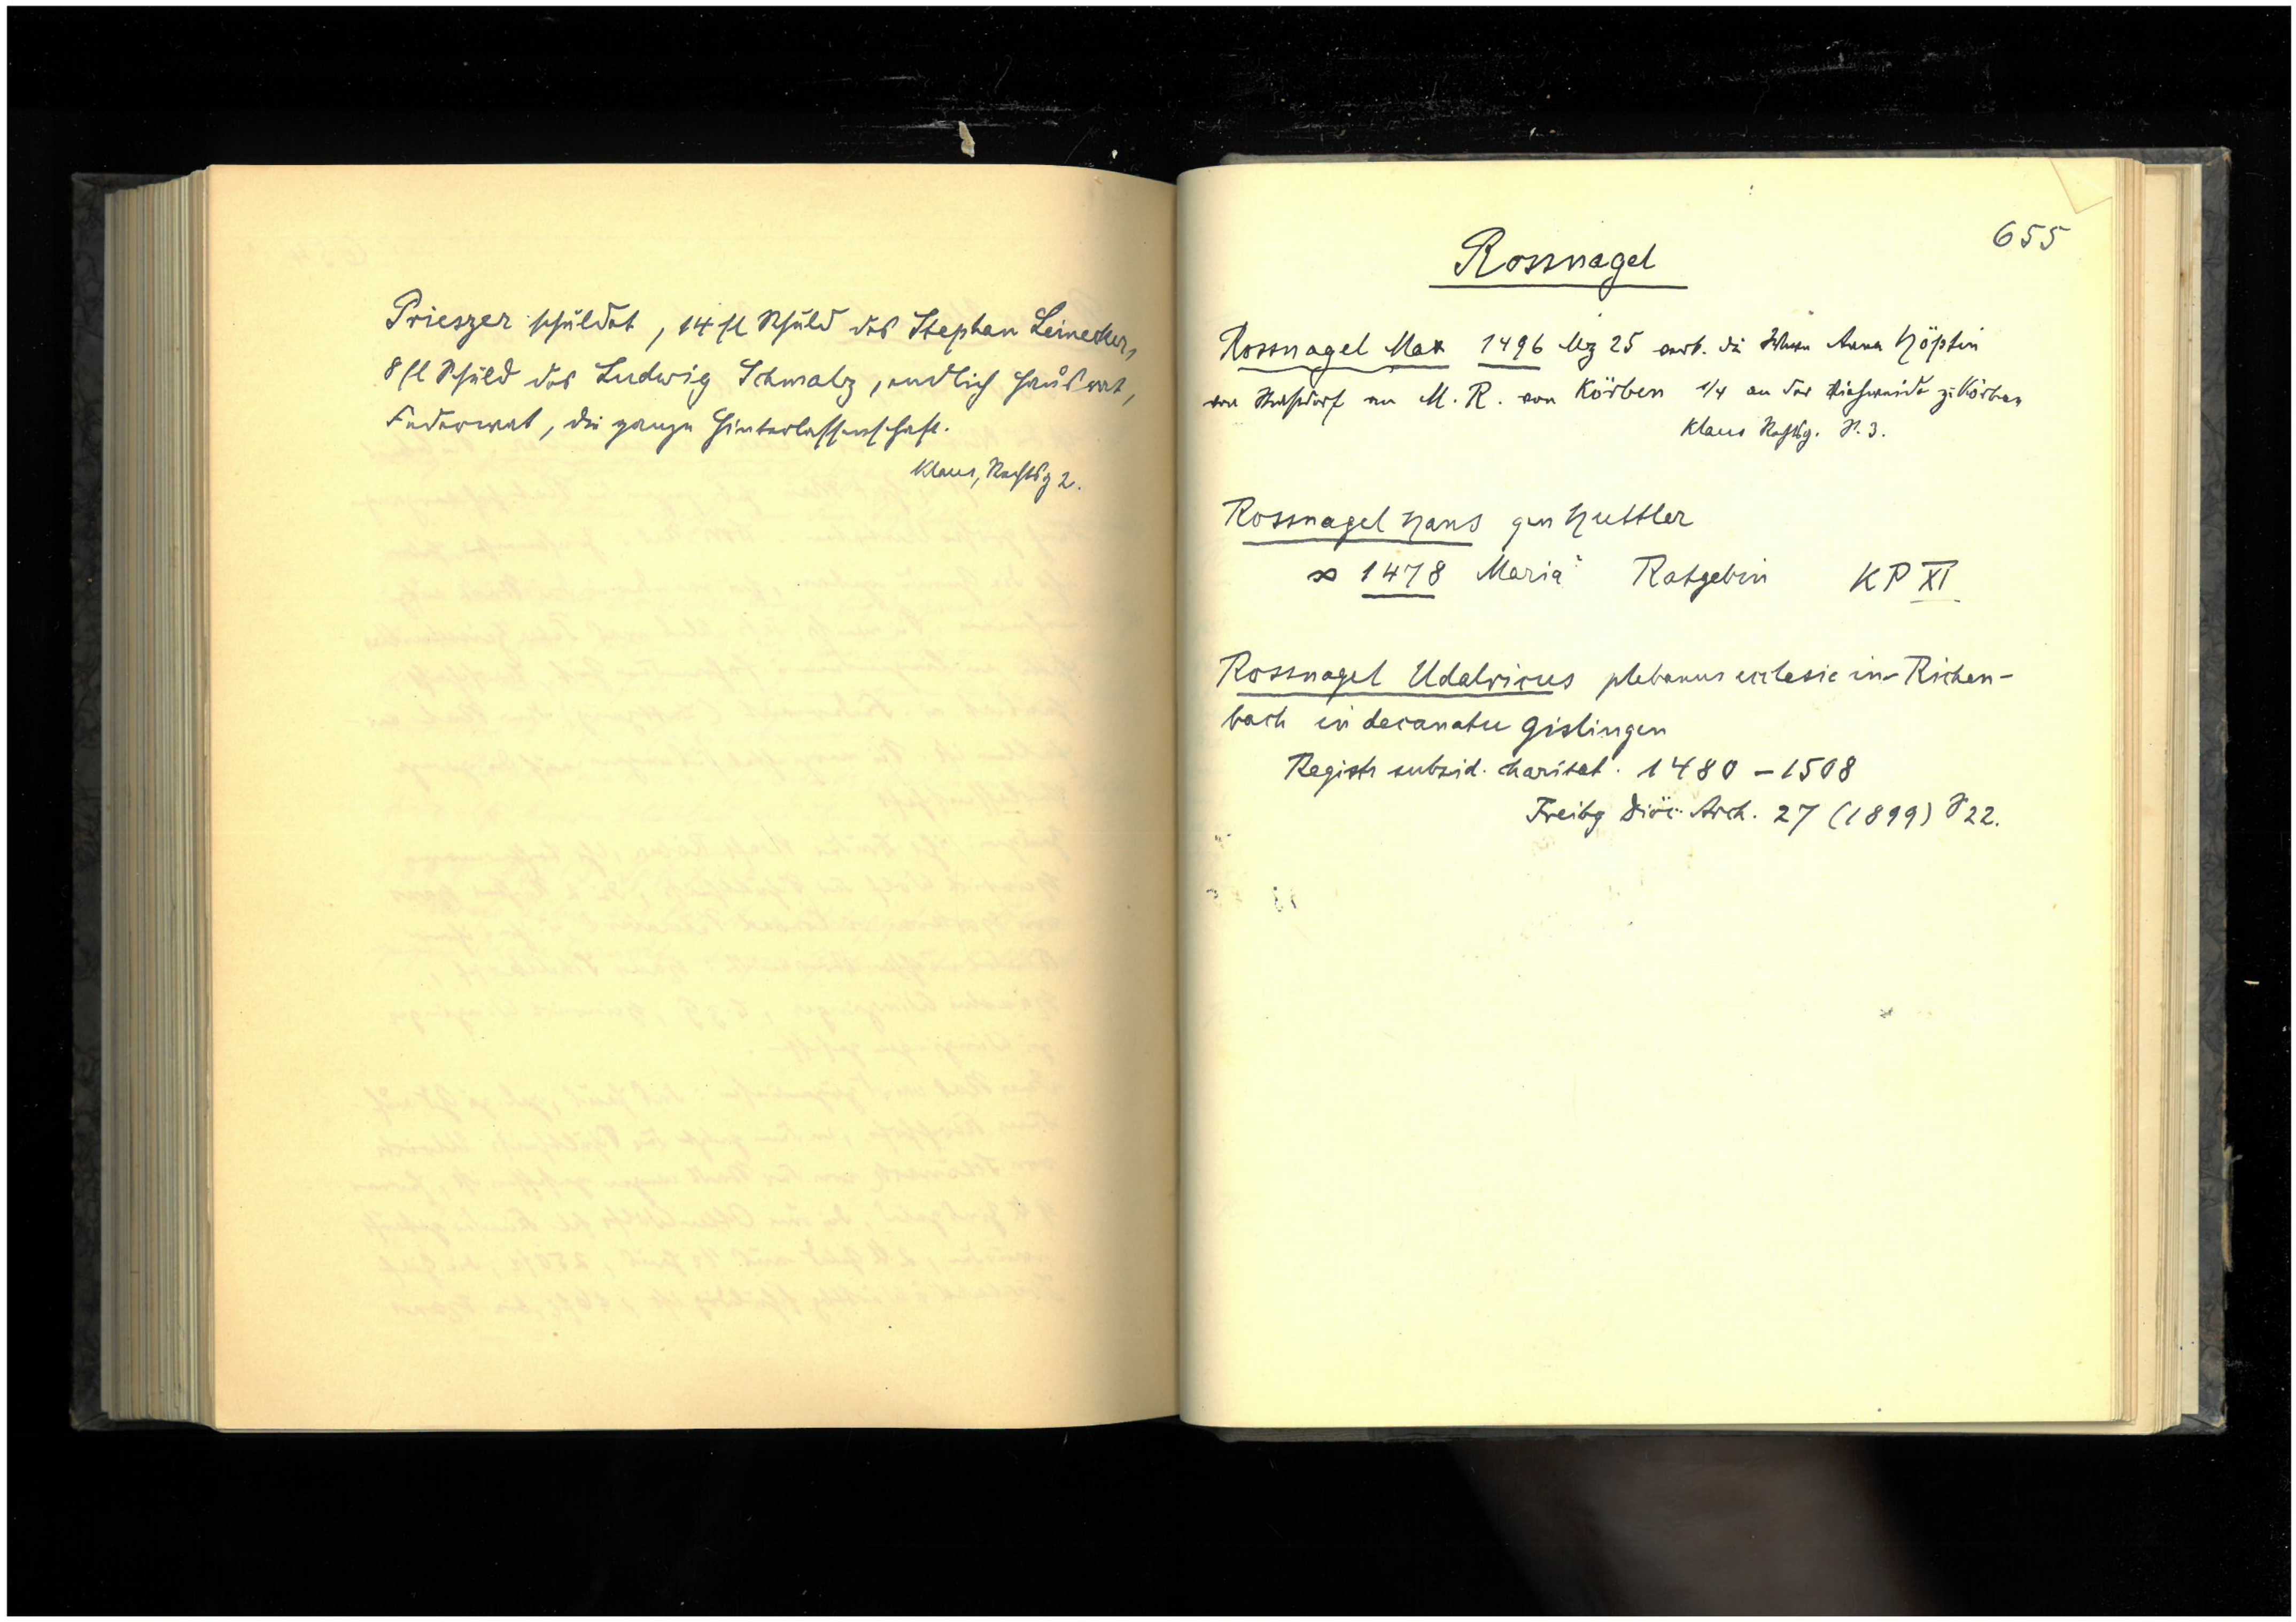 Prieszer schuldet, 14 fl Schuld des Stephan Leinecker,
8 fl Schuld des Ludwig Schmalz, endlich Hausrat,
Federwat, die ganze Hinterlassenschaft.
Klaus, Nachtrg 2.
655
Rossnagel
Rossnagel Max 1496 Mz 25 verk. die Anna Höpfin
von an M. R. von Körben 1/4 an der Viehweide z. Körben
Klaus Nachtrg. S. 3.
Rossnagel Hans gen Huttler
∞ 1478 Maria Ratgebin KP XI
Rossnagel Udalricus plebanus ecclesie in Richen-
bach in decanatu Gislingen
Registr subsid. charitat. 1480 – 1508
Freibg Diöc. Arch. 27 (1899) S 22.